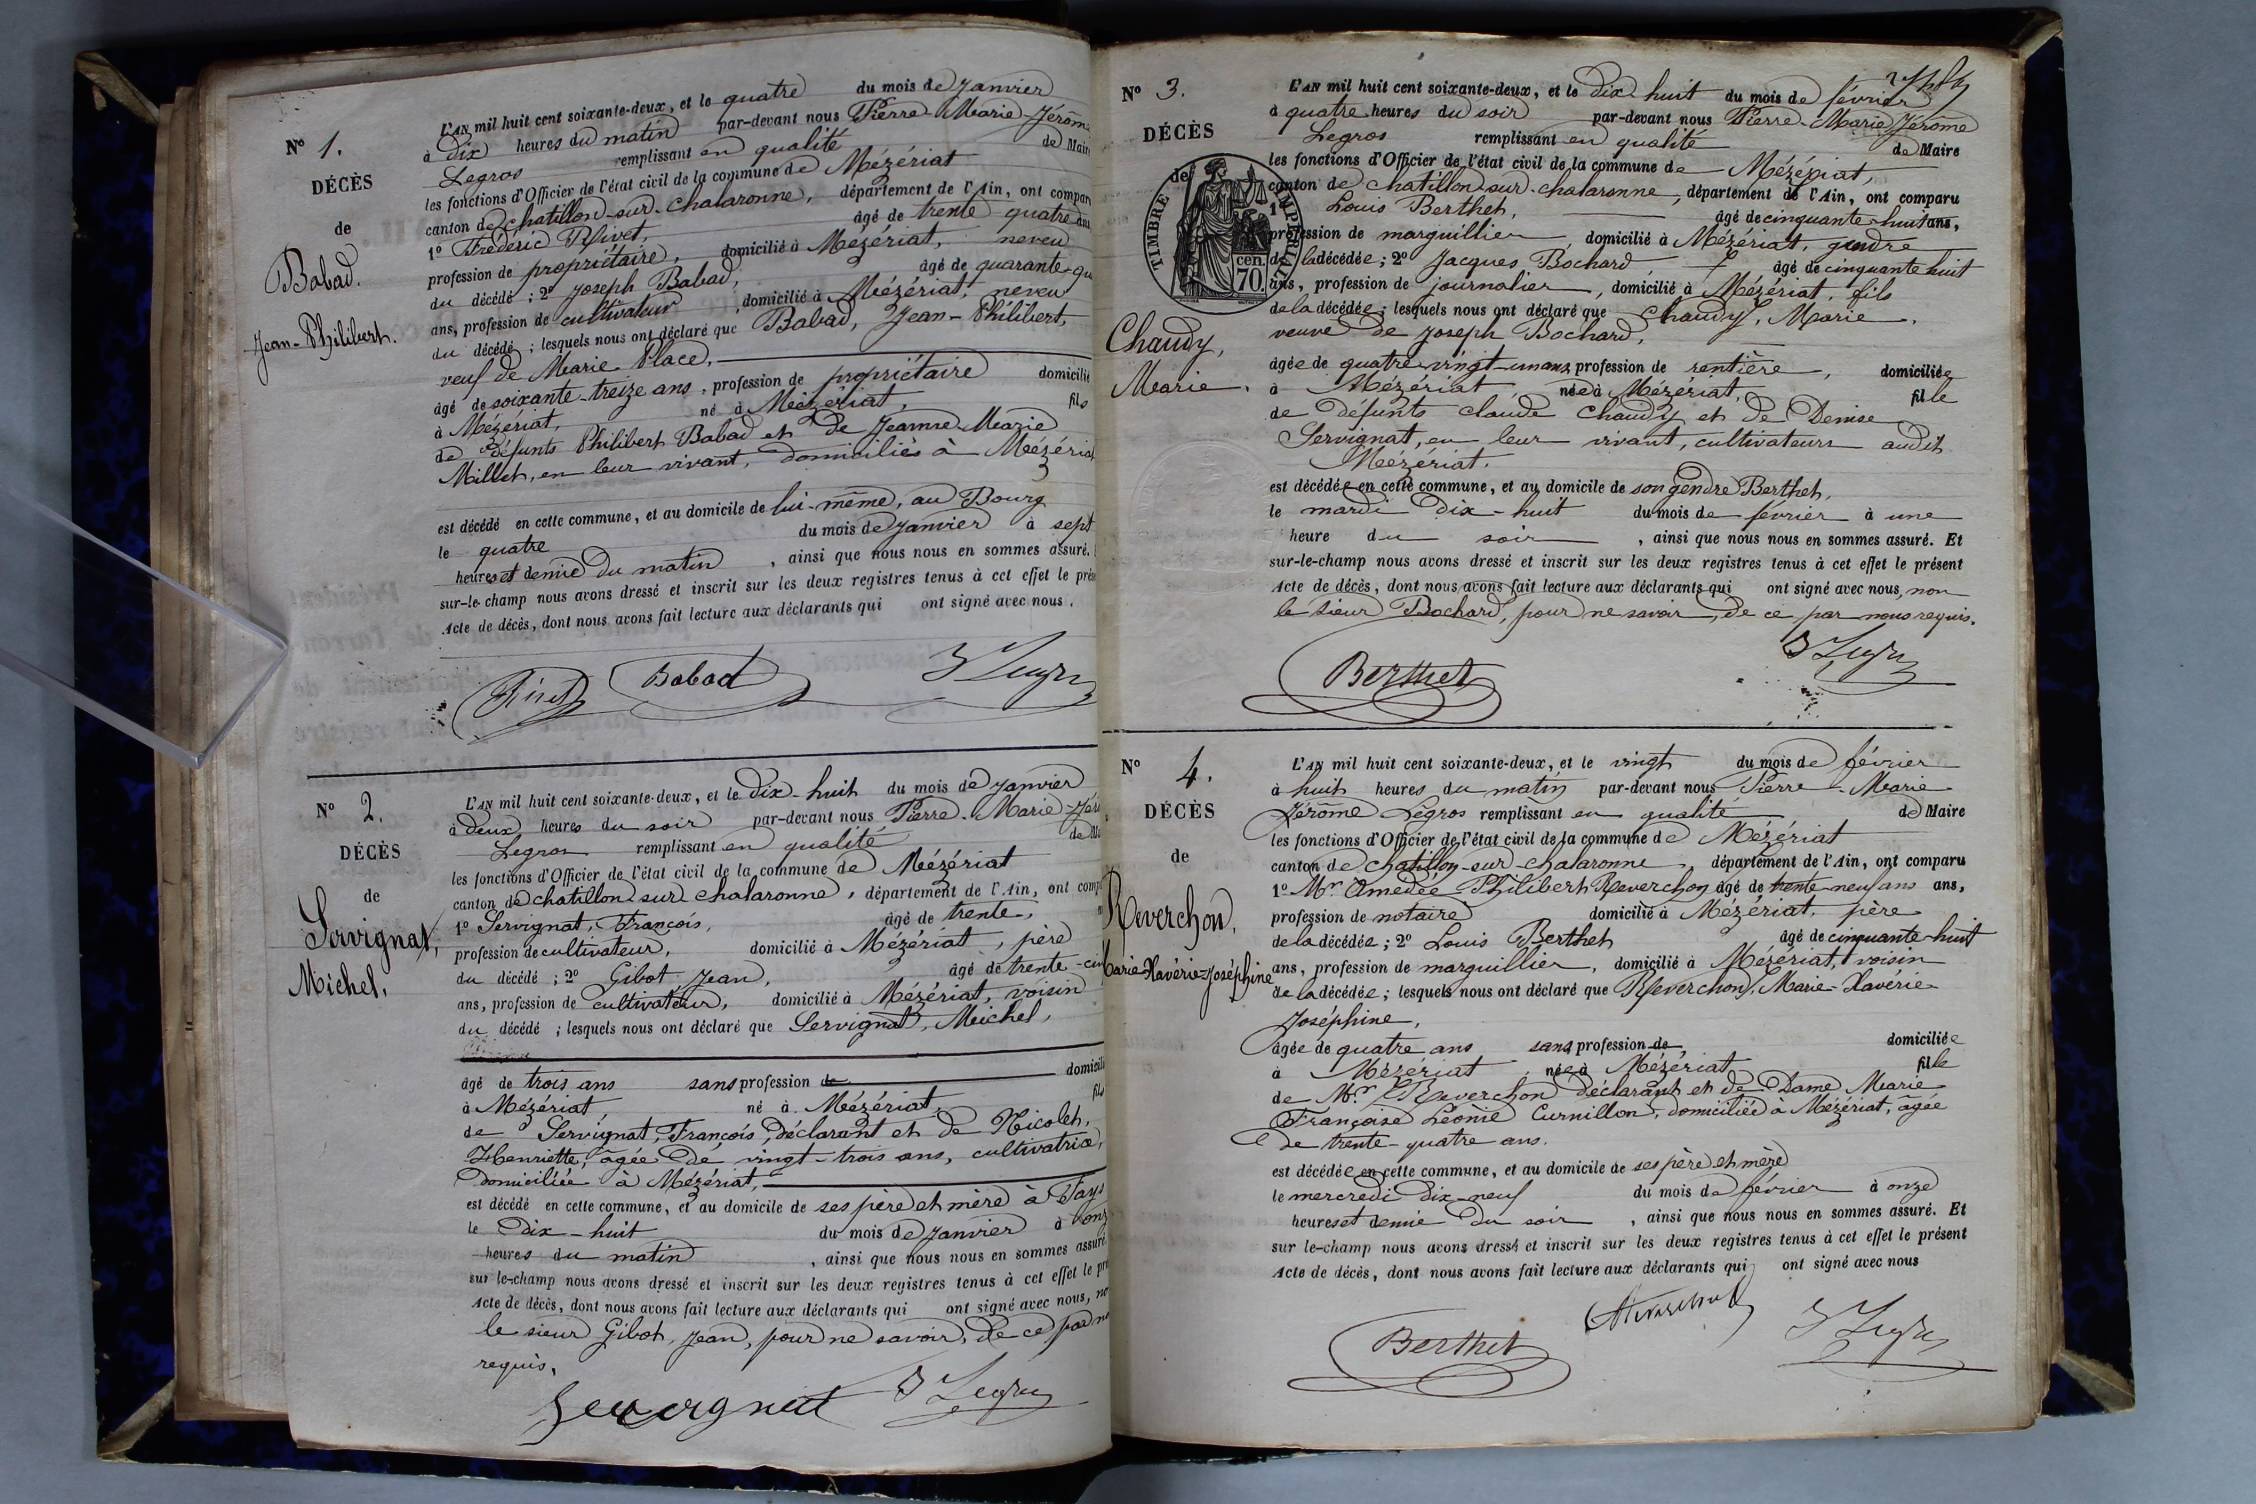 N° 1.
DÉCÈS
de
Babad.
Jean-Philibert.
L'AN mil huit cent soixante-deux, et le quatre du mois de janvier
à dix heures du matin par-devant nous Pierre-Marie-Jérôme
Legros remplissant en qualité de Maire
les fonctions d'Officier de l'état civil de la commune de Mézériat
canton de chatillon-sur-chalaronne, département de l'Ain, ont compar
1° Frédéric Rivet, âgé de trente quatre ans
profession de propriétaire, domicilié à Mézériat, neveu
du décédé ; 2° Joseph Babad, âgé de quarante-qu
ans, profession de cultivateur, domicilié à Mézériat, neveu
du décédé ; lesquels nous ont déclaré que Babad, Jean-Philibert,
veuf de Marie Place,
âgé de soixante-treize ans, profession de propriétaire domicilié
à Mézériat, né à Mézériat, fils
de défunts Philibert Babad et de Jeanne-Marie
Millet, en leur vivant, domiciliés à Mézériat
est décédé en cette commune, et au domicile de lui-même, au Bourg
le quatre du mois de janvier à sept
heures et demie du matin, ainsi que nous nous en sommes assuré.
sur-le-champ nous avons dressé et inscrit sur les deux registres tenus à cet effet le prés
Acte de décès, dont nous avons fait lecture aux déclarants qui ont signé avec nous.
Rivet Babad J Legros
N° 2.
DÉCÈS
de
Servignat,
Michel,
L'AN mil huit cent soixante-deux, et le dix-huit du mois de janvier
à deux heures du soir par-devant nous Pierre-Marie-Jér
Legros remplissant en qualité de Ma
les fonctions d'Officier de l'état civil de la commune de Mézériat
canton de chatillon sur chalaronne, département de l'Ain, ont comp
1° Servignat, François, âgé de trente,
profession de cultivateur, domicilié à Mézériat, père
du décédé ; 2° Gibot, Jean, âgé de trente-cin
ans, profession de cultivateur, domicilié à Mézériat, voisin
du décédé ; lesquels nous ont déclaré que Servignat, Michel,
âgé de trois ans sans profession de domicilié
à Mézériat, né à Mézériat, fils
de Servignat, François, déclarant et de Nicolet,
Henriette, âgée de vingt-trois ans, cultivatrice,
domiciliée à Mézériat,
est décédé en cette commune, et au domicile de ses père et mère à Fays
le dix-huit du mois de janvier à onz
heures du matin, ainsi que nous nous en sommes assuré.
sur le-champ nous avons dressé et inscrit sur les deux registres tenus à cet effet le pré
Acte de décès, dont nous avons fait lecture aux déclarants qui ont signé avec nous, no
le sieur Gibot, Jean, pour ne savoir, de ce par no
requis.
Servignat J Legros
N° 3.
DÉCÈS
de
TIMBRE IMPÉRIAL
70. cen.
Chaudy,
Marie.
L'AN mil huit cent soixante-deux, et le dix-huit du mois de février
à quatre heures du soir par-devant nous Pierre-Marie Jérôme
Legros remplissant en qualité de Maire
les fonctions d'Officier de l'état civil de la commune de Mézériat,
canton de chatillon-sur-chalaronne, département de l'Ain, ont comparu
1° Louis Berthet, âgé de cinquante-huit ans,
profession de marguillier, domicilié à Mézériat, gendre
de la décédée ; 2° Jacques Bochard âgé de cinquante huit
ans, profession de journalier, domicilié à Mézériat, fils
de la décédée ; lesquels nous ont déclaré que Chaudy, Marie,
veuve de Joseph Bochard,
âgée de quatre-vingt-un ans, profession de rentière, domiciliée
à Mézériat née à Mézériat, fille
de défunts claude Chaudy et de Denise
Servignat, en leur vivant, cultivateurs audit
Mézériat.
est décédée en cette commune, et au domicile de son gendre Berthet,
le mardi dix-huit du mois de février à une
heure du soir, ainsi que nous nous en sommes assuré. Et
sur-le-champ nous avons dressé et inscrit sur les deux registres tenus à cet effet le présent
Acte de décès, dont nous avons fait lecture aux déclarants qui ont signé avec nous, non
le sieur Bochard, pour ne savoir, de ce par nous requis.
Berthet J Legros
N° 4.
DÉCÈS
de
Reverchon,
Marie-Xavérie-Joséphine
L'AN mil huit cent soixante-deux, et le vingt du mois de février
à huit heures du matin par-devant nous Pierre-Marie
Jérôme Legros remplissant en qualité de Maire
les fonctions d'Officier de l'état civil de la commune de Mézériat
canton de chatillon-sur-chalaronne, département de l'Ain, ont comparu
1° Mr Amédée Philibert Reverchon âgé de trente-neuf ans ans,
profession de notaire domicilié à Mézériat, père
de la décédée ; 2° Louis Berthet âgé de cinquante-huit
ans, profession de marguillier, domicilié à Mézériat, voisin
de la décédée ; lesquels nous ont déclaré que Reverchon, Marie-Xavérie
Joséphine,
âgée de quatre ans sans profession de domiciliée
à Mézériat, née à Mézériat, fille
de Mr. Reverchon déclarant et de Dame Marie
Françoise Léonie Curnillon, domiciliée à Mézériat, âgée
de trente-quatre ans.
est décédée en cette commune, et au domicile de ses père et mère
le mercredi dix-neuf du mois de février à onze
heures et demie du soir, ainsi que nous nous en sommes assuré. Et
sur le-champ nous avons dressé et inscrit sur les deux registres tenus à cet effet le présent
Acte de décès, dont nous avons fait lecture aux déclarants qui ont signé avec nous
Berthet AReverchon J Legros